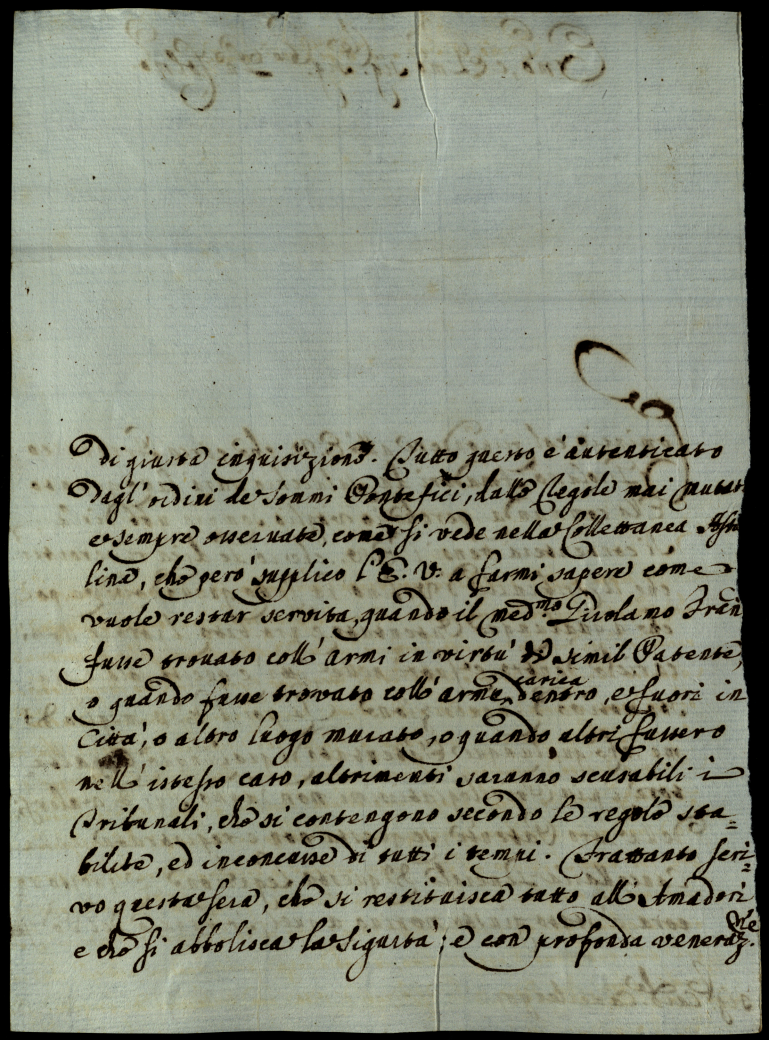 di giusta inquisizione. Tutto questo è autenticato
dagl'ordini de Sommi Pontefici, dalle Regole mai mutat
e sempre osservate, come si vede nella Collettanea
lina, che però supplico l'E. V. a farmi sapere come
vuole restar servita, quando il med.mo Girolamo Fran
fusse trovato coll'armi in virtù di simil Patente,
o quando fusse trovato coll'arma carica dentro, e fuori in
Città, o altro luogo murato, o quando altri fussero
nell'istesso caso, altrimenti saranno scusabili i
Tribunali, che si contengono secondo le regole sta=
bilite, ed inconcusse di tutti i tempi. Frattanto scri=
vo questa sera, che si restituisca tutto all'Amadori
e che si abbolisca la sigurtà; e con profonda veneraz.ne